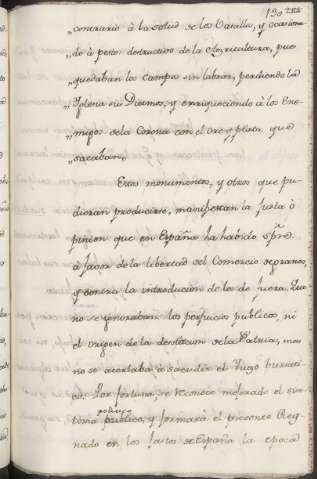 190
„contrario à la salud de los Vasallos, y ocasiona
do à peste: destructivo de la Agricultura, pues
„quedaban los campos sin labrar, perdiendo la
„Iglesia sus Diezmos, y enriqueciendo à los Ene
„migos dela Corona con el oro y plata que
„sacaban„
Estos monumentos, y otros que pu-
dieran producirse, manifiestan la justa ò
pinion que en España ha habido spre.
à favor de la libertad del Comercio de granos,
y contra la introduccion de los de fuera. Que
no se ignoraban los perjuicios publicos, ni
el origen de la desolacion dela Patria; mas
no se acertaba à sacudir el Yugo
Por fortuna, se reconoce mejorado el sis-
politico
tema publico, y formarà el presente Rey-
nado en los fastos de España la epoca